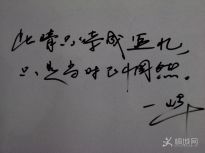 此情只待成追忆，
只是当时已惘然。
一